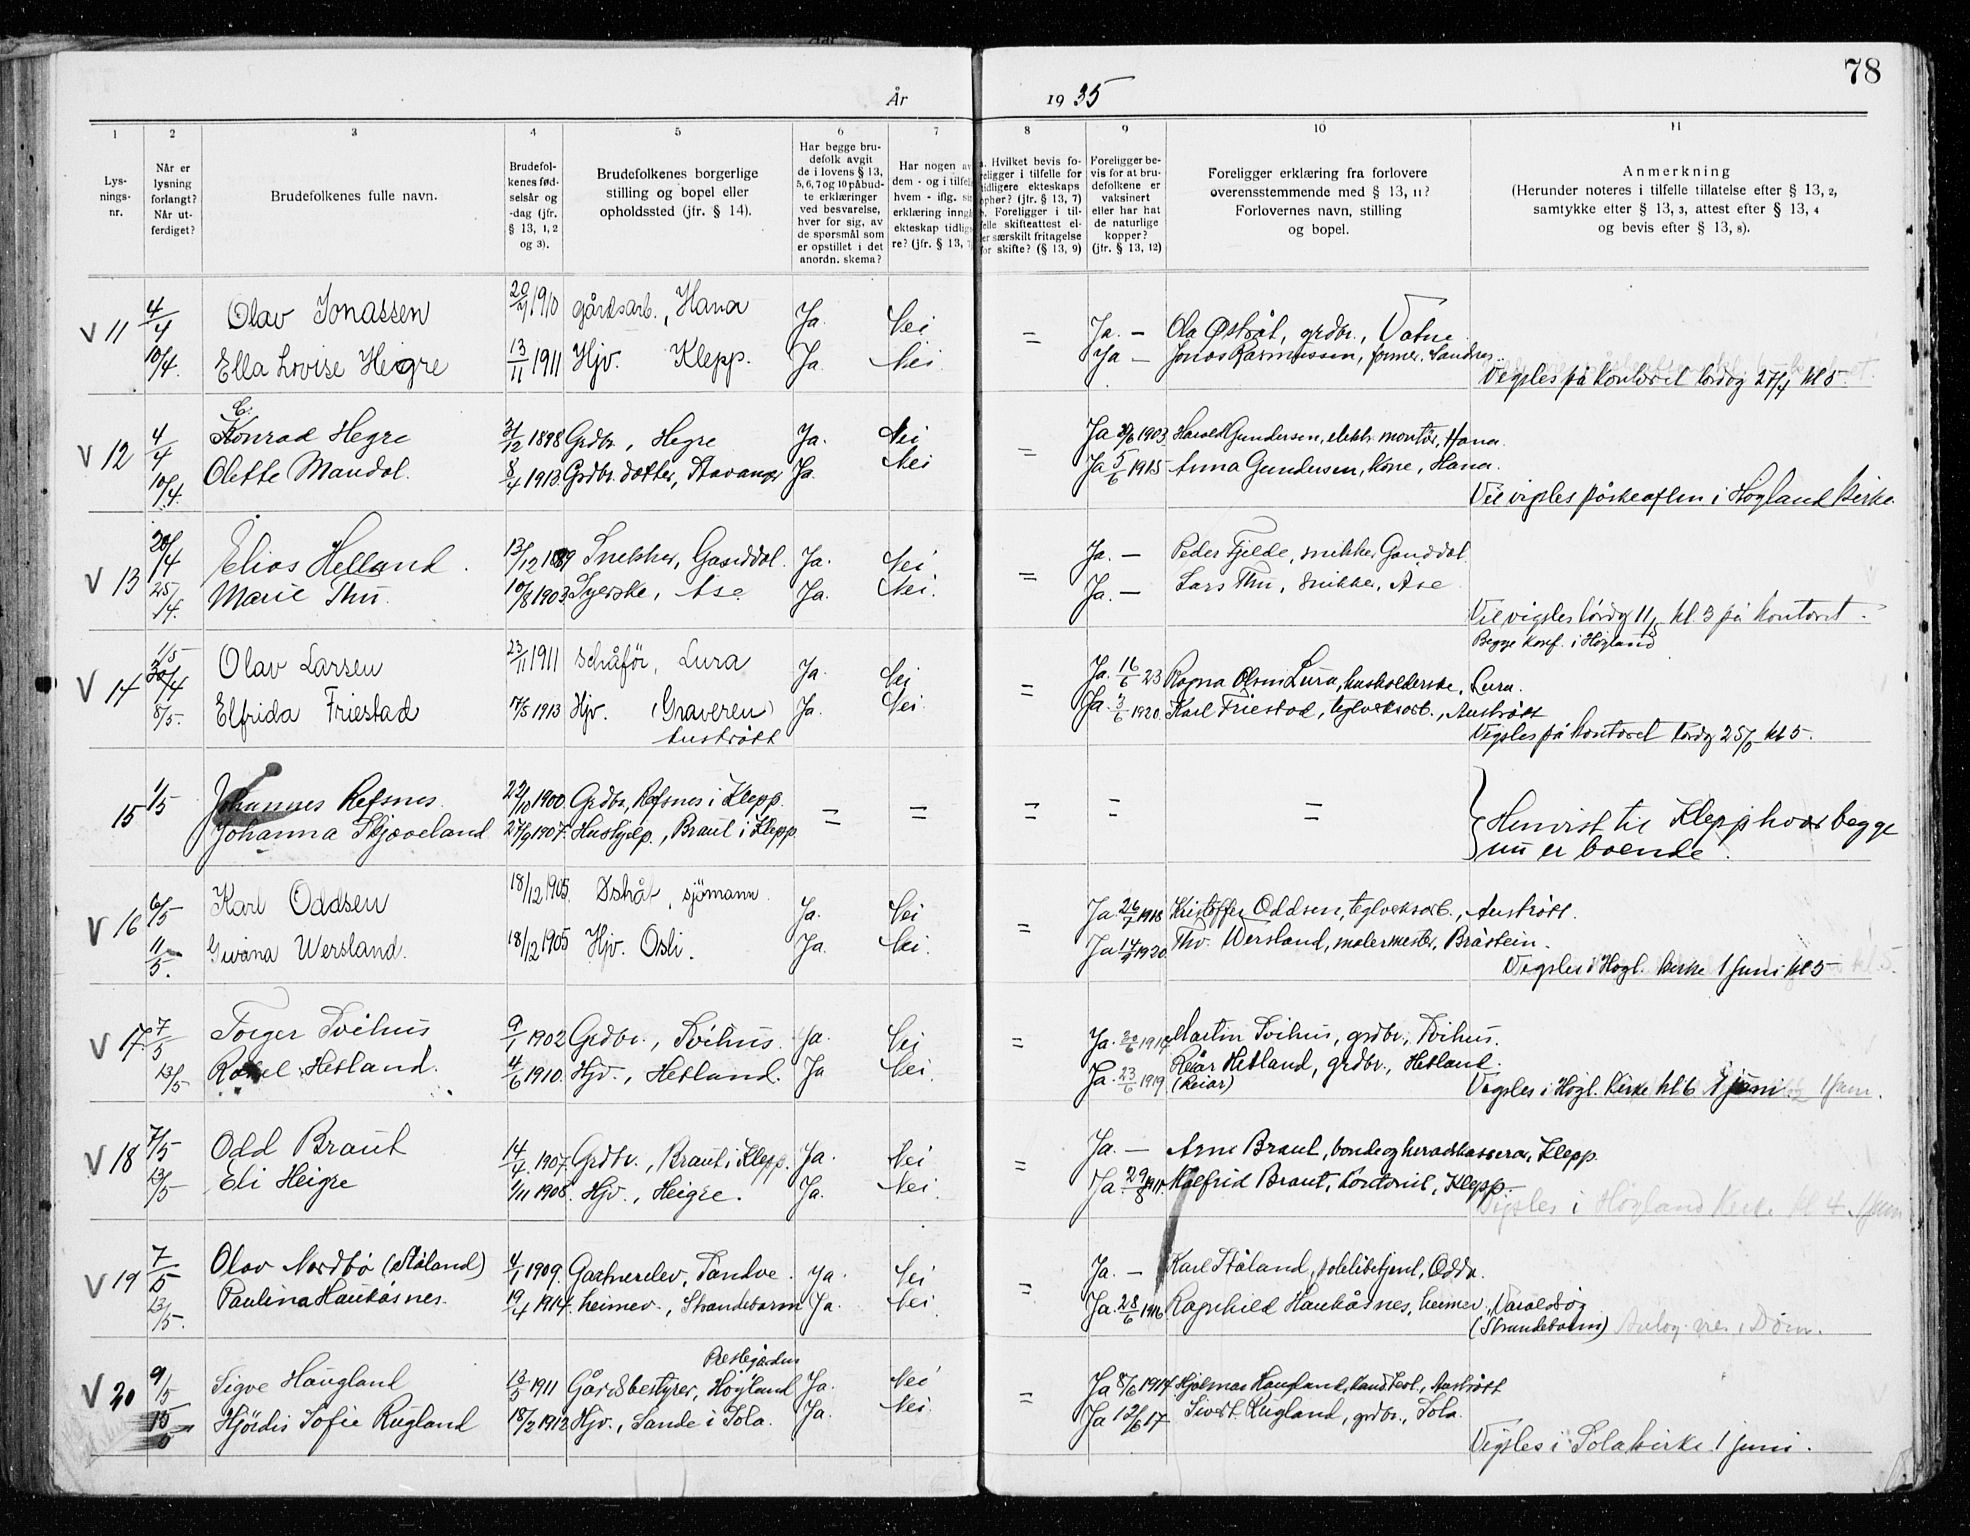 78
År 1935
1 2 3 4 5 6 7 8 9 10 11
Lys-
nings-
nr.
Når er
lysning
forlangt?
Når ut-
ferdiget?
Brudefolkenes fulle navn.
Brudefol-
kenes fød-
selsår og
-dag (jfr.
§ 13, 1, 2
og 3).
Brudefolkenes borgerlige
stilling og bopel eller
opholdssted (jfr. § 14).
Har begge bru-
defolk avgit
de i lovens § 13,
5, 6, 7 og 10 påbud-
te erklæringer
ved besvarelse,
hver for sig, av
de spørsmål som
er opstillet i det
anordn. skema?
Har nogen av
dem - og i tilfelle
hvem - iflg. sin
erklæring inngått
ekteskap tidlige-
re? (jfr. § 13, 7
a. Hvilket bevis fo-
religger i tilfelle for
tidligere ekteskaps
ophør? (jfr. § 13, 7)
b. Foreligger i til-
felle skifteattest el-
ler særskilt fritagelse
for skifte? (§ 13, 9)
Foreligger be-
vis for at bru-
defolkene er
vaksinert
eller har hat
de naturlige
kopper?
(jfr. § 13, 12)
Foreligger erklæring fra forlovere
overensstemmende med § 13, 11?
Forlovernes navn, stilling
og bopel.
Anmerkning
(Herunder noteres i tilfelle tillatelse efter § 13, 2,
samtykke efter § 13, 3, attest efter § 13, 4
og bevis efter § 13, 8).
V 11 4/4 Olav Jonassen 20/4 1910 gårdsarb., Hana Ja. Nei = Ja. — Ola Østråt, grdbr., Vatne
10/4. Ella Lovise Heigre 13/11 1911 Hjv. Klepp. Ja. Nei. Ja — Jonas Rasmussen, former, Sandnes.
Vigsles på kontoret lørdag 27/4 kl 5.
V 12 4/4 Konrad Hegre 31/12 1898 Grdbr., Hegre Ja. Nei = Ja 29/6 1903 Harald Gundersen, elektr. montør, Hana.
10/4. Olette Mandal. 8/4 1913. Grdbr. datter, Stavanger Ja. Nei Ja 5/6 1915 Anna Gundersen, kone, Hana.
Vil vigsles påskeaften i Høyland kirke.
V 13 20/4 Elias Helland. 13/12 1889 Snekker, Ganddal. Ja. Nei = Ja. — Peder Fjelde, snikker Ganddal
25/4. Marie Thu. 10/8 1903. Syerske, Ase Ja. Nei. Ja. — Lars Thu, snikker, Ase
Vil vigsles lørdag 11/5 kl. 3 på kontoret.
Begge konf. i Høyland
V 14 1/5 30/4 Olav Larsen 23/11 1911 schåför, Lura Ja. Nei = Ja. 16/6 23 Ragna Olsen Lura, husholderske, Lura.
8/5. Elfrida Friestad 17/5 1913 Hjv. (Graveren) Ja. Nei. Ja. 3/6 1920. Karl Friestad, teglverksarb., Austrått
Austrått
Vigsles på kontoret lørdag 25/5 kl 5.
15 1/5 Johannes Refsnes. 22/10 1900. Grdbr., Refsnes i Klepp. = = = = = Henvist til Klepp hvor begge
Johanna Skjæveland 27/9 1907. Hushjelp., Braut i Klepp nu er boende.
V 16 6/5 Karl Oddsen 18/12 1905. Østråt, sjömann. Ja. Nei = Ja. 26/7 1918 Kristoffer Oddsen, teglverksarb., Austrått.
11/5. Givana Wersland. 18/12 1905 Hjv. Osli. Ja. Nei. Ja 14/9 1920. Thv. Wersland, malermester, Bråstein.
Vigsles i Høgl. kirke 1 juni kl 5
V 17. 7/5 Torger Tvihus 9/1 1902 Grdbr., Tvihus. Ja. Nei = Ja. 30/6 1914 Martin Tvihus, grdbr., Tvihus.
13/5 Rakel Hetland. 4/6 1910. Hjv., Hetland. Ja Nei. Ja. 23/6 1919 Reiar Hetland, grdbr., Hetland.
(Reiar)
Vigsles i Høgl. kirke kl 6 1 juni
V 18 7/5 Odd Braut 14/4. 1907. Grdbr., Braut i Klepp. Ja. Nei = Ja. — Arne Braut, bonde og heradskasserar, Klepp
13/5 Eli Heigre 1/11 1908. Hjv., Heigre. Ja. Nei. Ja. 29/8 1911. Malfrid Braut, kontorist, Klepp.
Vigsles i Høyland Kirke kl 4. 1 juni
V 19 7/5 Olav Nordbø (Ståland) 4/1 1909. Gartnerelev, Tandve. Ja. Nei = Ja. — Karl Ståland, politibetjent, Odda.
13/5. Paulina Haukåsnes. 19/4 1914. heimev., Strandebarm Ja. Nei. Ja. 28/6 1916 Ragnhild Haukåsnes, heimev., Varaldsøy
(Strandebarm)
V 20 9/5 Sigve Haugland 13/5 1911 Gårdsbestyrer, Prestegården Høyland Ja. Nei = Ja 8/6 1914 Hjalmar Haugland, kand. teol., Austrått
15/5 Hjördis Sofie Rugland 18/2 1912 Hjv., Sande i Sola. Ja. Nei. Ja 12/6 17. Sivert Rugland, grdbr., Sola.
Vigsles i Sola kirke 1 juni.